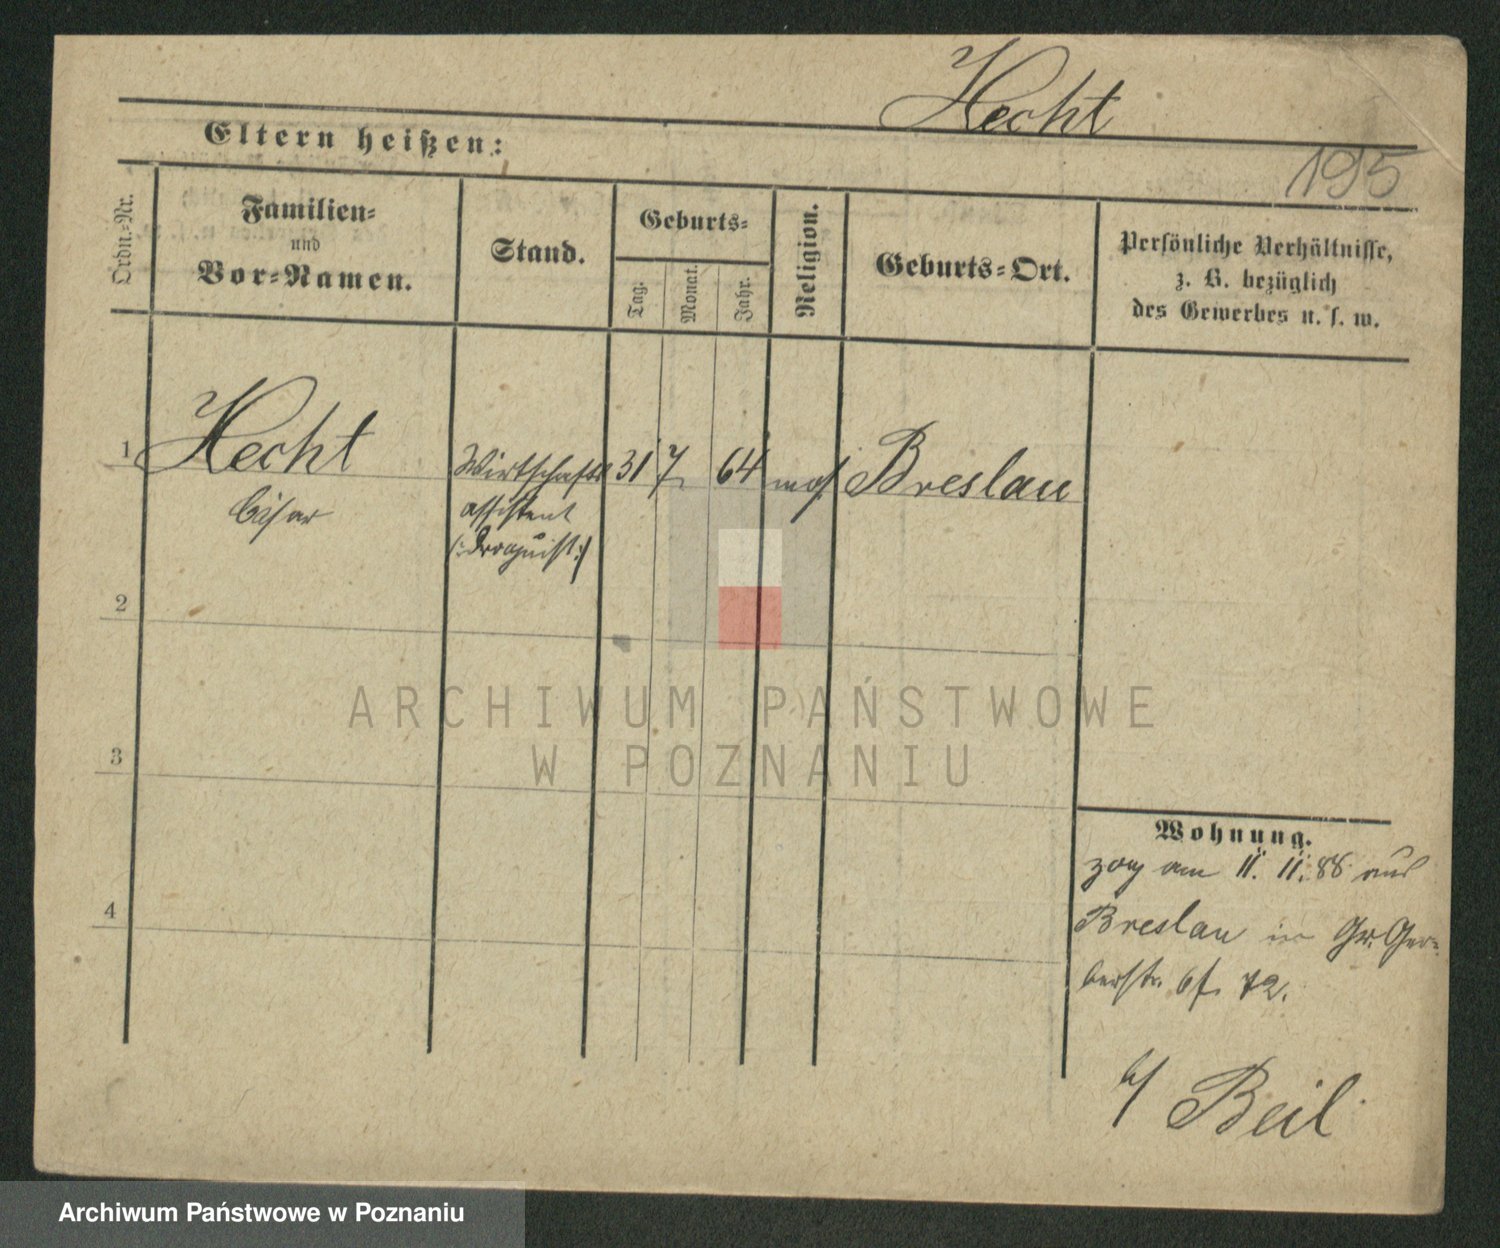 Hecht
195
Eltern heißen:
Ordn.-Nr.
Familien-
und
Vor-Namen.
Stand.
Geburts-
Tag.
Monat.
Jahr.
Religion.
Geburts-Ort.
Persönliche Verhältnisse,
z. B. bezüglich
des Gewerbes u. s. w.
1 Hecht Wirthschafts 31 7 64 mos Breslau
Cäsar assistent
(:Droguist:)
2
3
4
Wohnung.
zog am 11. 11. 88 aus
Breslau in Gr. Ger-
berstr. 72.
b/ Beil
ARCHIWUM PAŃSTWOWE
W POZNANIU
Archiwum Państwowe w Poznaniu